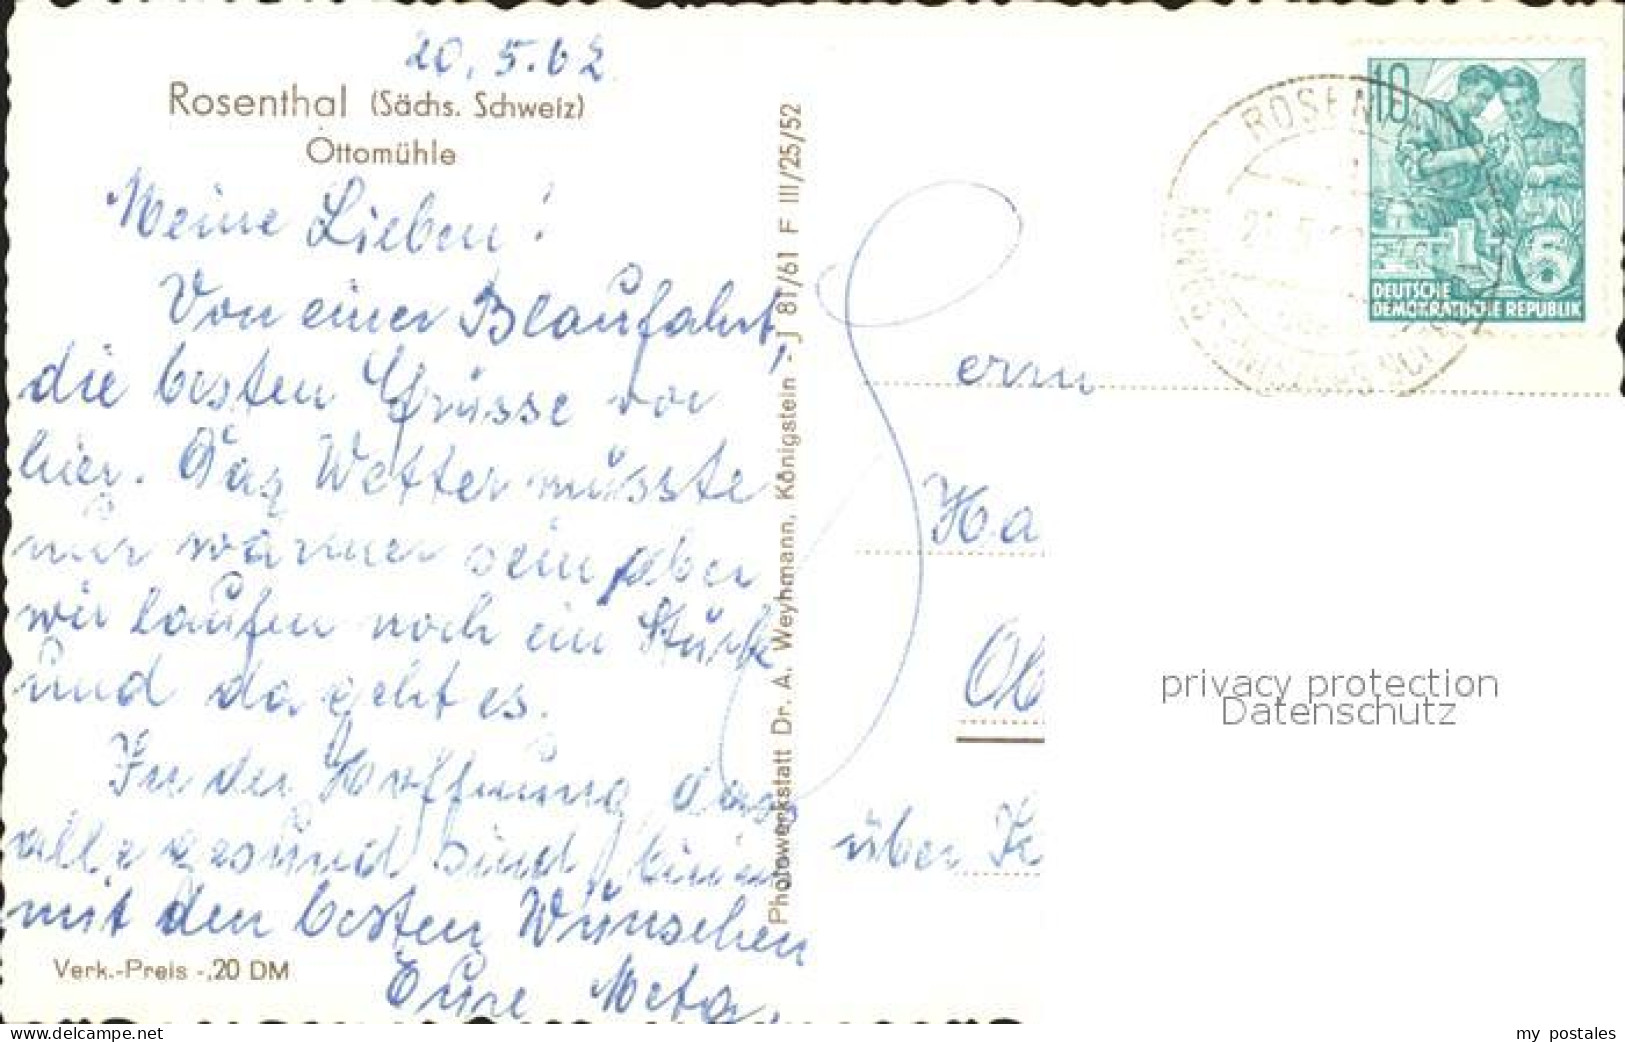 20.5.62
Rosenthal (Sächs. Schweiz)
Ottomühle
Meine Lieben!
Von einer Blaufahrt,
die besten Grüsse von
hier. Das Wetter müsste
nur wärmer sein, aber
wir laufen noch ein Stück
und da geht es.
In der Hoffnung das
alle gesund sind, bin
mit den besten Wünschen
Eure Meta.
Verk.-Preis -,20 DM
Photowerkstatt Dr. A. Weyhmann, Königstein - J 81/61 F III/25/52
10
5
DEUTSCHE
DEMOKRATISCHE REPUBLIK
ROSENT
ern
Ha
Ob
über
privacy protection
Datenschutz
delcampe.net
my_postales